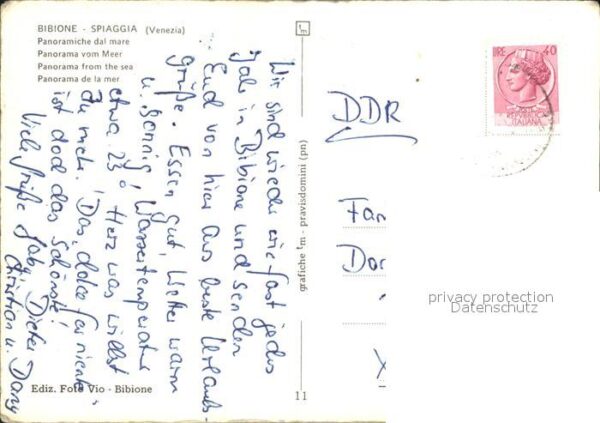 BIBIONE - SPIAGGIA (Venezia)
Panoramiche dal mare
Panorama vom Meer
Panorama from the sea
Panorama de la mer
Wir sind wieder wie fast jedes
Jahr in Bibione und senden
Euch von hier aus beste Urlaubs-
grüße. Essen gut, Wetter warm
u. sonnig, Wassertemperatur
etwa 23° Herz was willst
du mehr. Das "dolce far niente"
ist doch das schönste!
Viele Grüße Gaby, Dieter
Christian u. Dany
Ediz. Foto Vio - Bibione
grafiche tm - pravisdomini (pn)
11
tm
LIRE 40
REPUBBLICA
ITALIANA
DDR
Fam
Dor
X
privacy protection
Datenschutz